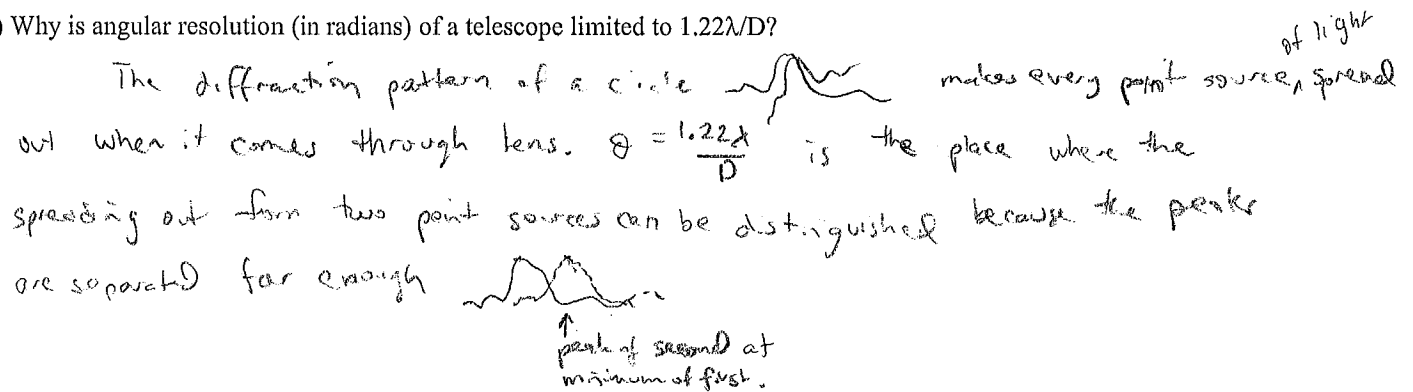 Why is angular resolution (in radians) of a telescope limited to 1.22λ/D?
The diffraction pattern of a circle makes every point source of light spread
out when it comes through lens. θ = 1.22λ/D is the place where the
spreading out from two point sources can be distinguished because the peaks
are separated far enough
peak of second at
minimum of first.